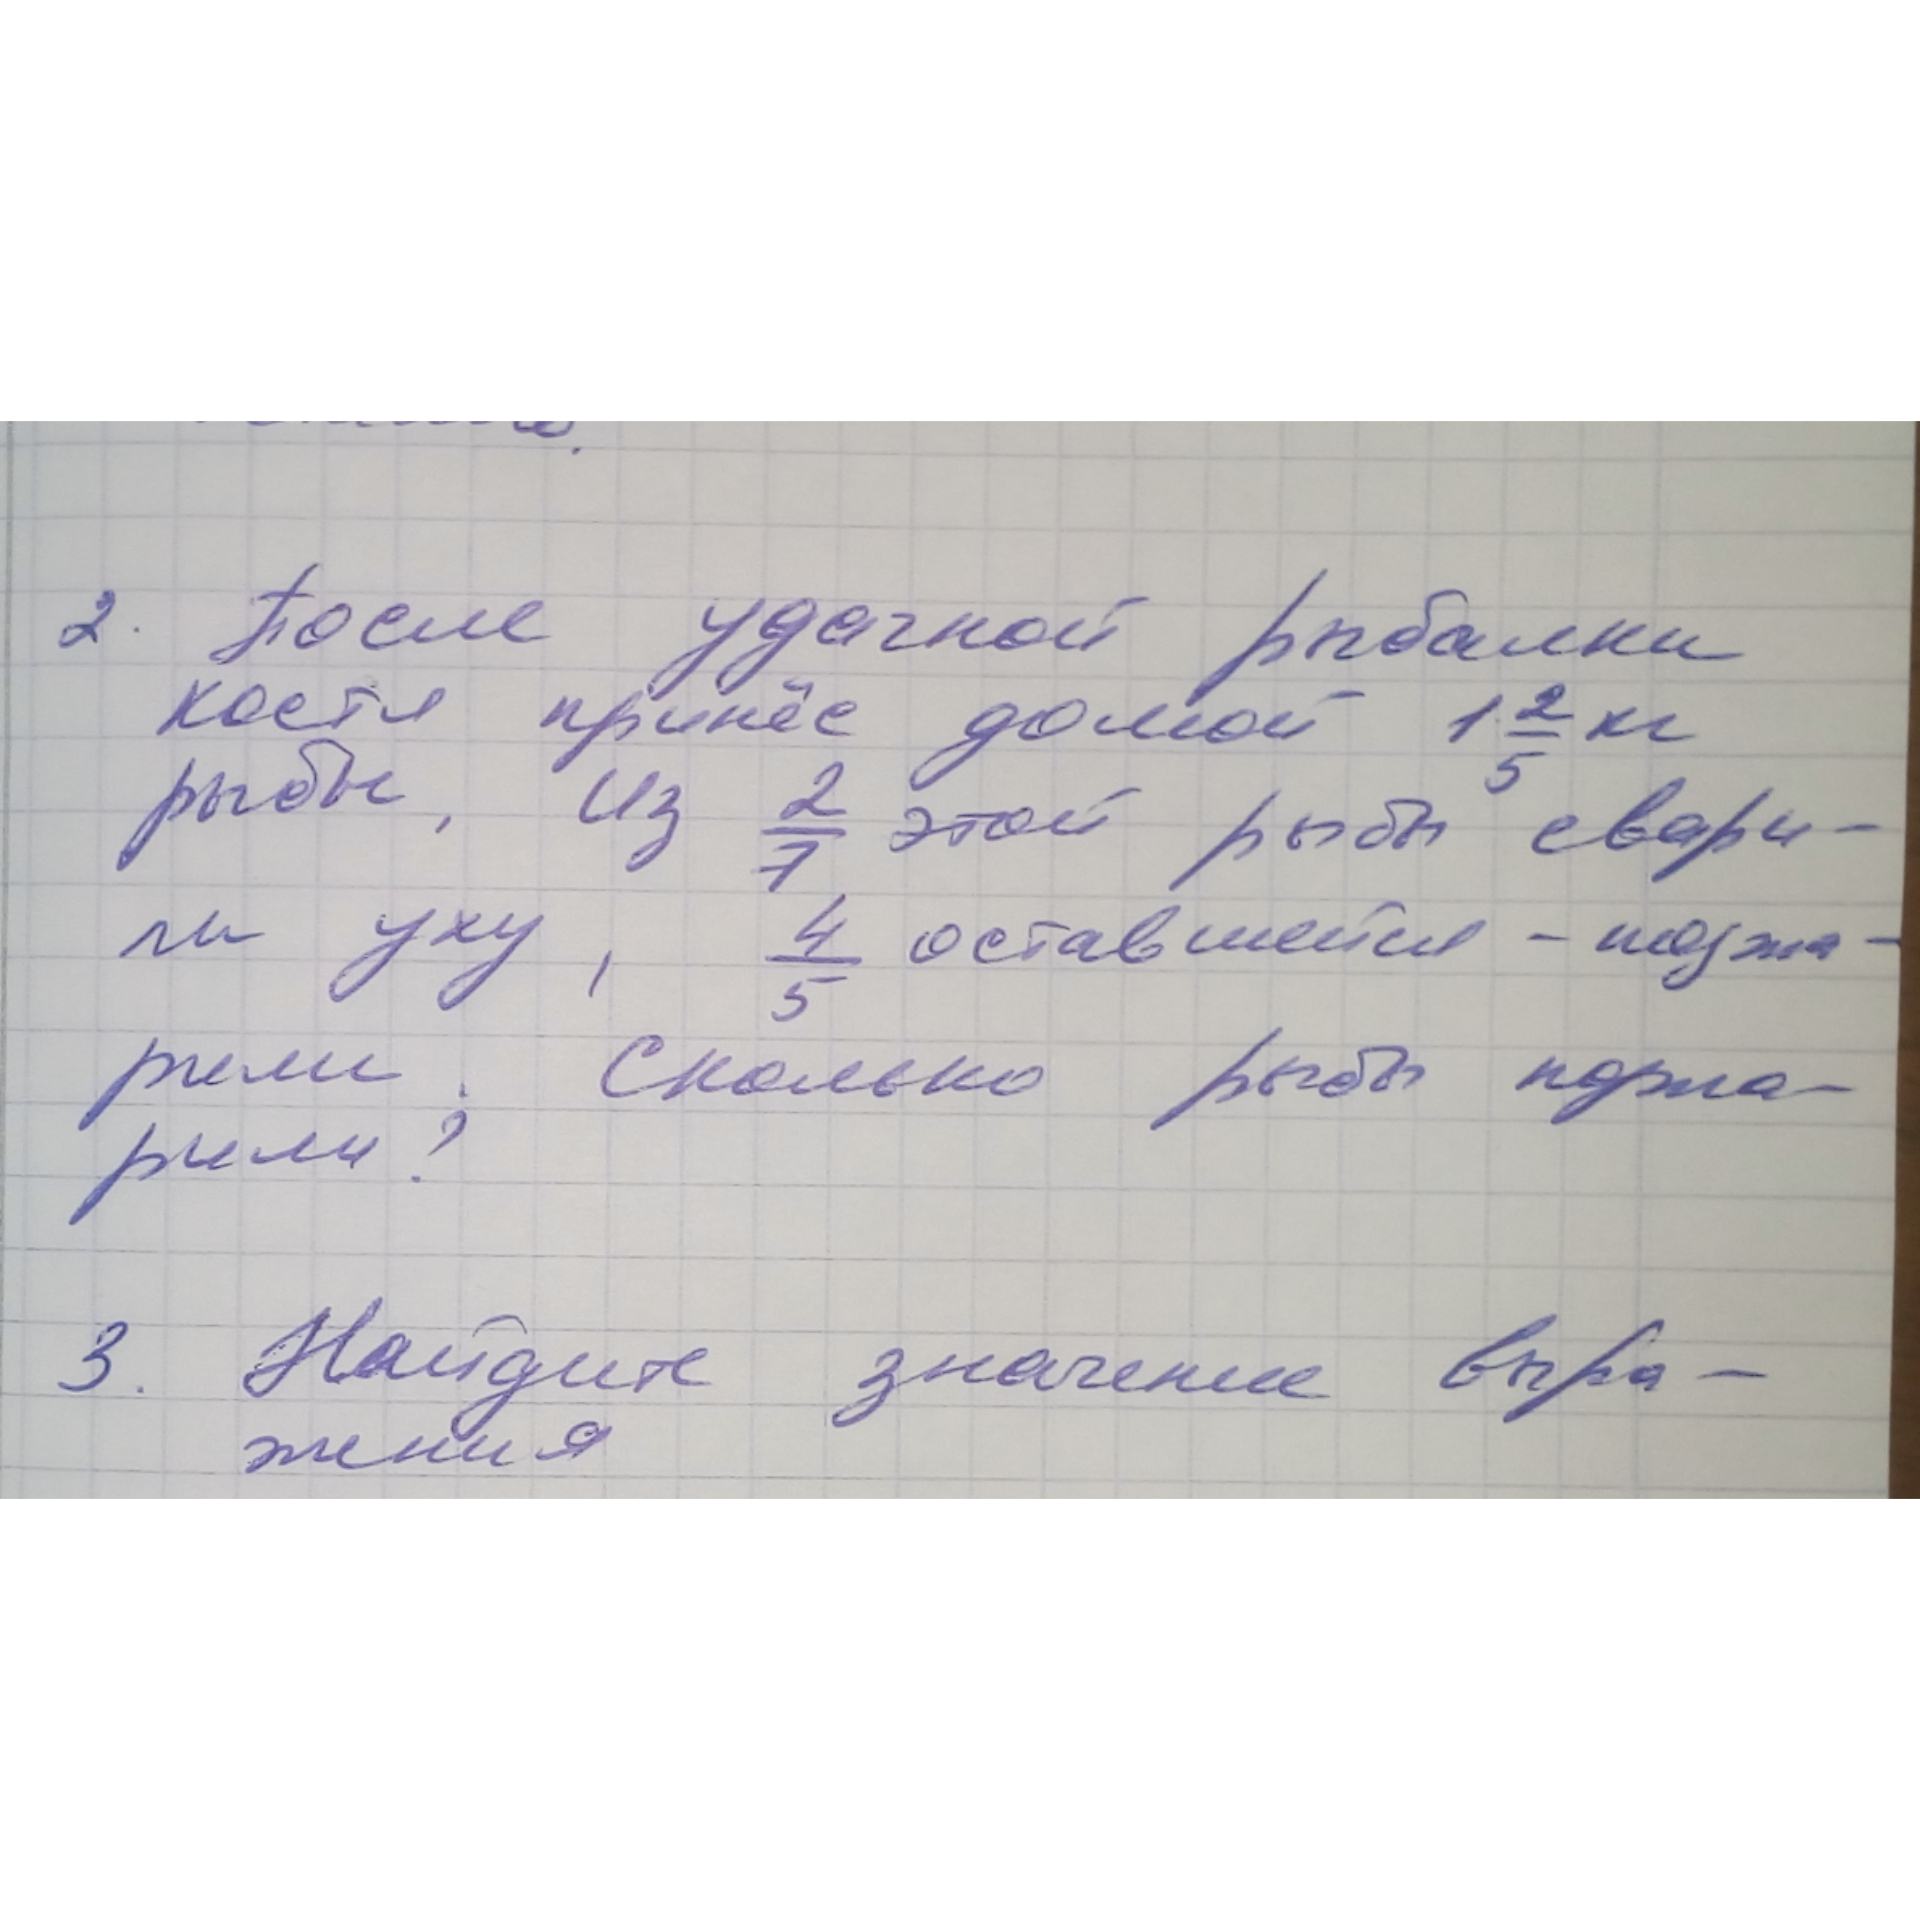 2. После удачной рыбалки
Костя принёс домой 1 2/5 кг
рыбы, Из 2/7 этой рыбы свари-
ли уху, 4/5 оставшейся - поджа-
рили. Сколько рыбы поджа-
рили?
3. Найдите значение выра-
жения